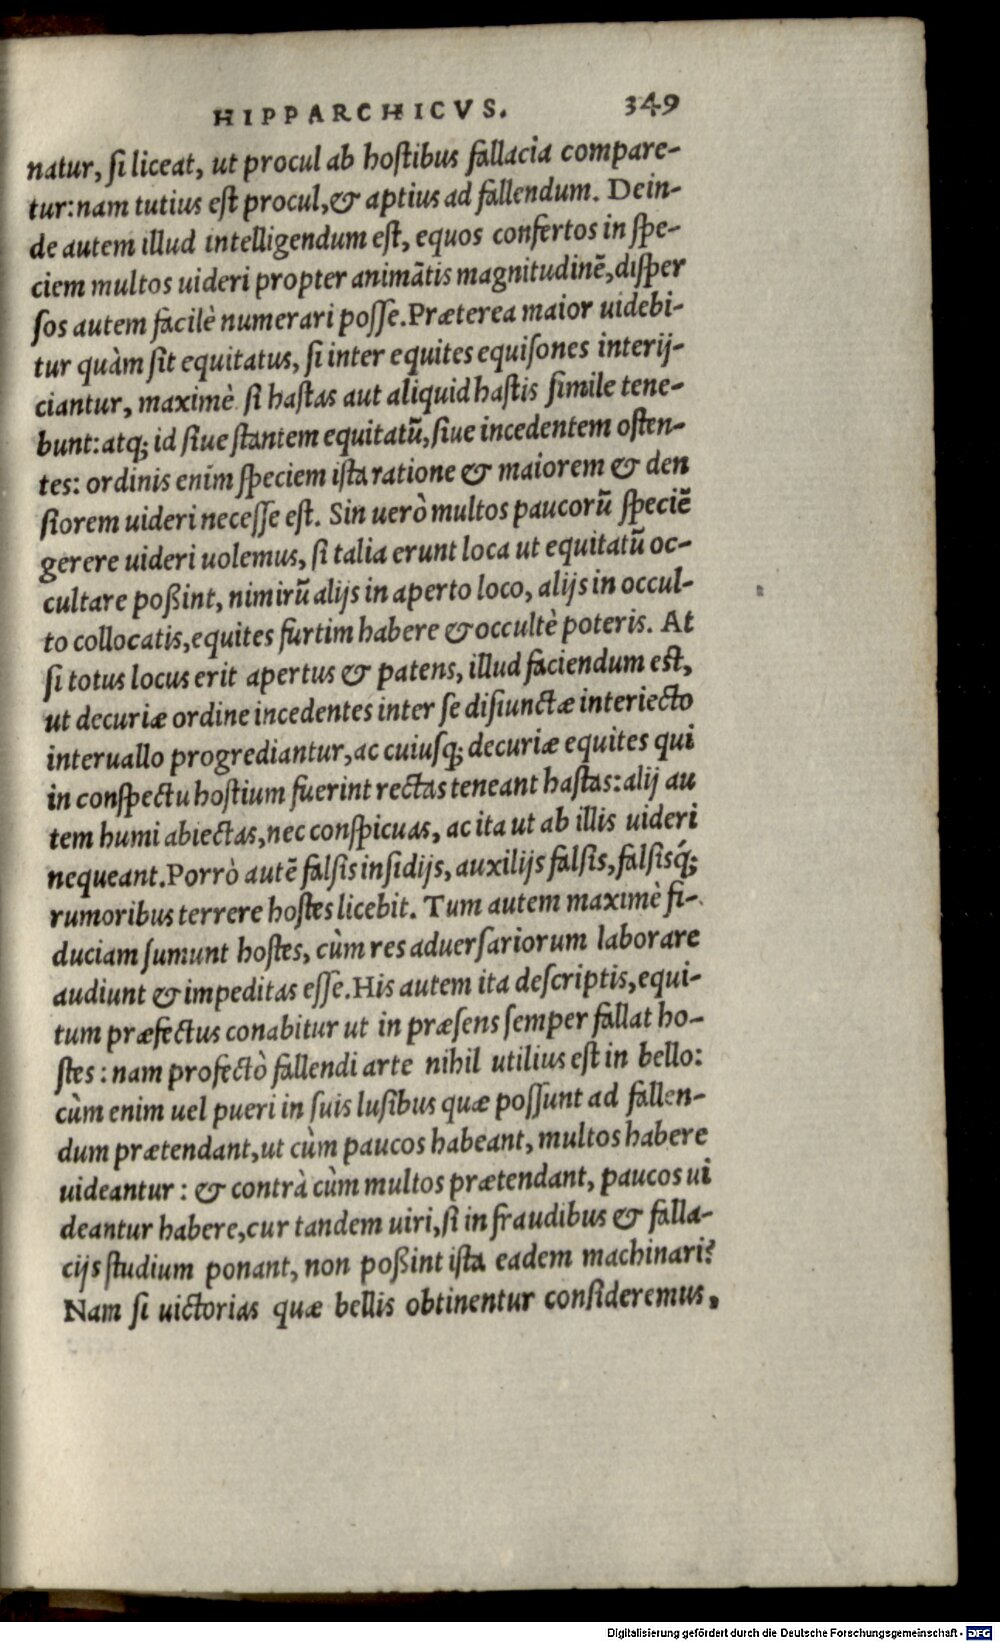 HIPPARCHICVS. 349
natur, si liceat, ut procul ab hostibus fallacia compare-
tur: nam tutius est procul, & aptius ad fallendum. Dein-
de autem illud intelligendum est, equos confertos in spe-
ciem multos uideri propter animātis magnitudinē, disper
sos autem facilè numerari posse. Præterea maior uidebi-
tur quàm sit equitatus, si inter equites equisones interij-
ciantur, maximè si hastas aut aliquid hastis simile tene-
bunt: atq; id siue stantem equitatū, siue incedentem osten-
tes: ordinis enim speciem ista ratione & maiorem & den
siorem uideri necesse est. Sin uerò multos paucorū speciē
gerere uideri uolemus, si talia erunt loca ut equitatū oc-
cultare poßint, nimirū alijs in aperto loco, alijs in occul-
to collocatis, equites furtim habere & occultè poteris. At
si totus locus erit apertus & patens, illud faciendum est,
ut decuriæ ordine incedentes inter se disiunctæ interiecto
interuallo progrediantur, ac cuiusq; decuriæ equites qui
in conspectu hostium fuerint rectas teneant hastas: alij au
tem humi abiectas, nec conspicuas, ac ita ut ab illis uideri
nequeant. Porrò autē falsis insidijs, auxilijs falsis, falsisq́;
rumoribus terrere hostes licebit. Tum autem maximè fi-
duciam sumunt hostes, cùm res aduersariorum laborare
audiunt & impeditas esse. His autem ita descriptis, equi-
tum præfectus conabitur ut in præsens semper fallat ho-
stes: nam profectò fallendi arte nihil utilius est in bello:
cùm enim uel pueri in suis lusibus quæ possunt ad fallen-
dum prætendant, ut cùm paucos habeant, multos habere
uideantur: & contrà cùm multos prætendant, paucos ui
deantur habere, cur tandem uiri, si in fraudibus & falla-
cijs studium ponant, non poßint ista eadem machinari?
Nam si uictorias quæ bellis obtinentur consideremus,
Digitalisierung gefördert durch die Deutsche Forschungsgemeinschaft - DFG